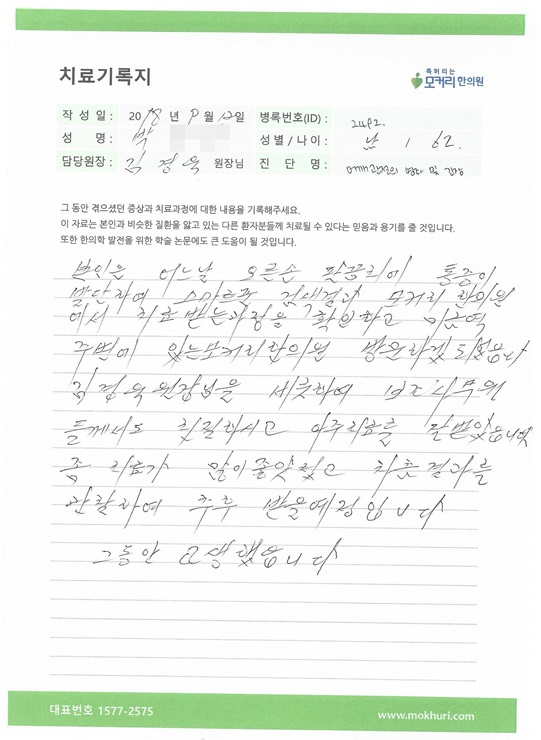 치료기록지
목허리는
모커리한의원
작 성 일 : 2018 년 9 월 12 일 병록번호(ID) :
성 명 : 박 성 별 / 나 이 : 남 / 62.
담당원장 : 김경욱 원장님 진 단 명 :
그 동안 겪으셨던 증상과 치료과정에 대한 내용을 기록해주세요.
이 자료는 본인과 비슷한 질환을 앓고 있는 다른 환자분들께 치료될 수 있다는 믿음과 용기를 줄 것입니다.
또한 한의학 발전을 위한 학술 논문에도 큰 도움이 될 것입니다.
본인은 어느날 오른손 팔꿈리에 통증이
발단하여 스마트폰 검색결과 모커리 한의원
에서 치료받는과정을 확인하고
주변에 있는모커리한의원 방문하게되였읍니다
김경욱원장님을 비롯하여
들께서도 친절하시고 아주치료를 잘받았읍니다
좀 치료가 많이좋앗젔고 차츰 결과를
관찰하여 추후 받을예정입니다
그동안 고생했읍니다
대표번호 1577-2575
www.mokhuri.com